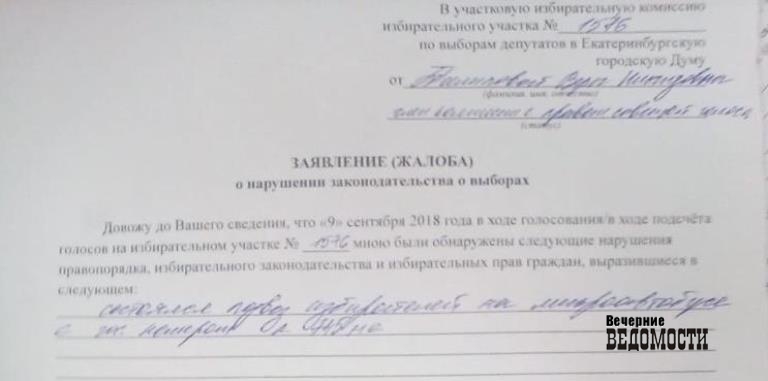 В участковую избирательную комиссию
избирательного участка № 1576
по выборам депутатов в Екатеринбургскую
городскую Думу
от
(фамилия, имя, отчество)
член комиссии с правом совещ. голоса
(статус)
ЗАЯВЛЕНИЕ (ЖАЛОБА)
о нарушении законодательства о выборах
Довожу до Вашего сведения, что «9» сентября 2018 года в ходе голосования/в ходе подсчёта
голосов на избирательном участке № 1576 мною были обнаружены следующие нарушения
правопорядка, избирательного законодательства и избирательных прав граждан, выразившиеся в
следующем:
состоялся подвоз избирателей на микроавтобусе
с
Вечерние
ВЕДОМОСТИ